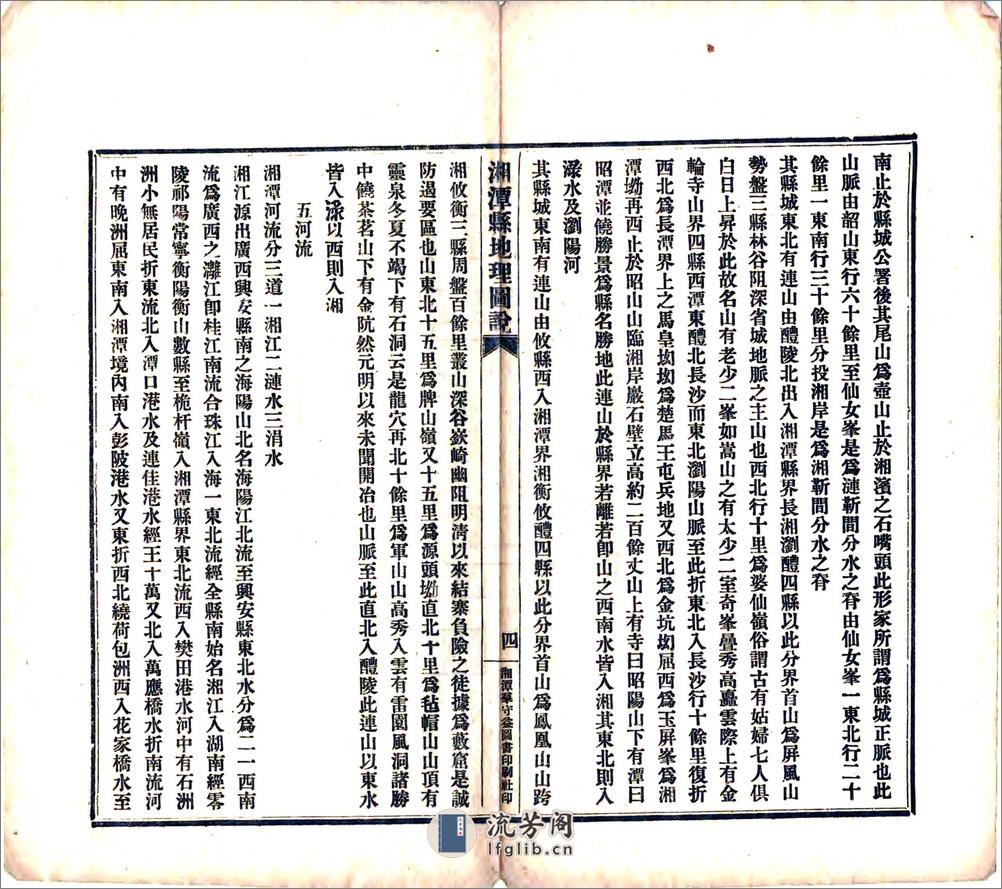 南止於縣城公署後其尾山爲壺山止於湘濱之石嘴頭此形家所謂爲縣城正脈也此
山脈由韶山東行六十餘里至仙女峯是爲漣靳間分水之脊由仙女峯一東北行二十
餘里一東南行三十餘里分投湘岸是爲湘靳間分水之脊
其縣城東北有連山由醴陵北出入湘潭縣界長湘瀏醴四縣以此分界首山爲屏風山
勢盤三縣林谷阻深省城地脈之主山也西北行十里爲婆仙嶺俗謂古有姑婦七人俱
白日上昇於此故名山有老少二峯如嵩山之有太少二室奇峯疊秀高矗雲際上有金
輪寺山界四縣西潭東醴北長沙而東北瀏陽山脈至此折東北入長沙行十餘里復折
西北爲長潭界上之馬皇坳坳爲楚馬王屯兵地又西北爲金坑坳屈西爲玉屏峯爲湘
潭坳再西止於昭山山臨湘岸巖石壁立高約二百餘丈山上有寺曰昭陽山下有潭曰
昭潭並饒勝景爲縣名勝地此連山於縣界若離若卽山之西南水皆入湘其東北則入
淥水及瀏陽河
其縣城東南有連山由攸縣西入湘潭界湘衡攸醴四縣以此分界首山爲鳳凰山山跨
湘潭縣地理圖說
四
湘潭華守益圖書印刷社印
湘攸衡三縣周盤百餘里叢山深谷嶔崎幽阻明淸以來結寨負險之徒據爲藪窟是誠
防遏要區也山東北十五里爲牌山嶺又十五里爲源頭坳直北十里爲毡帽山山頂有
靈泉冬夏不竭下有石洞云是龍穴再北十餘里爲軍山山高秀入雲有雷園風洞諸勝
中饒茶茗山下有金阬然元明以來未聞開冶也山脈至此直北入醴陵此連山以東水
皆入淥以西則入湘
五河流
湘潭河流分三道一湘江二漣水三涓水
湘江源出廣西興安縣南之海陽山北名海陽江北流至興安縣東北水分爲二一西南
流爲廣西之灕江卽桂江南流合珠江入海一東北流經全縣南始名湘江入湖南經零
陵祁陽常寧衡陽衡山數縣至桅杆嶺入湘潭縣界東北流西入樊田港水河中有石洲
洲小無居民折東流北入潭口港水及連佳港水經王十萬又北入萬應橋水折南流河
中有晚洲屈東南入湘潭境內南入彭陂港水又東折西北繞荷包洲西入花家橋水至
流芳阁
lfglib.cn